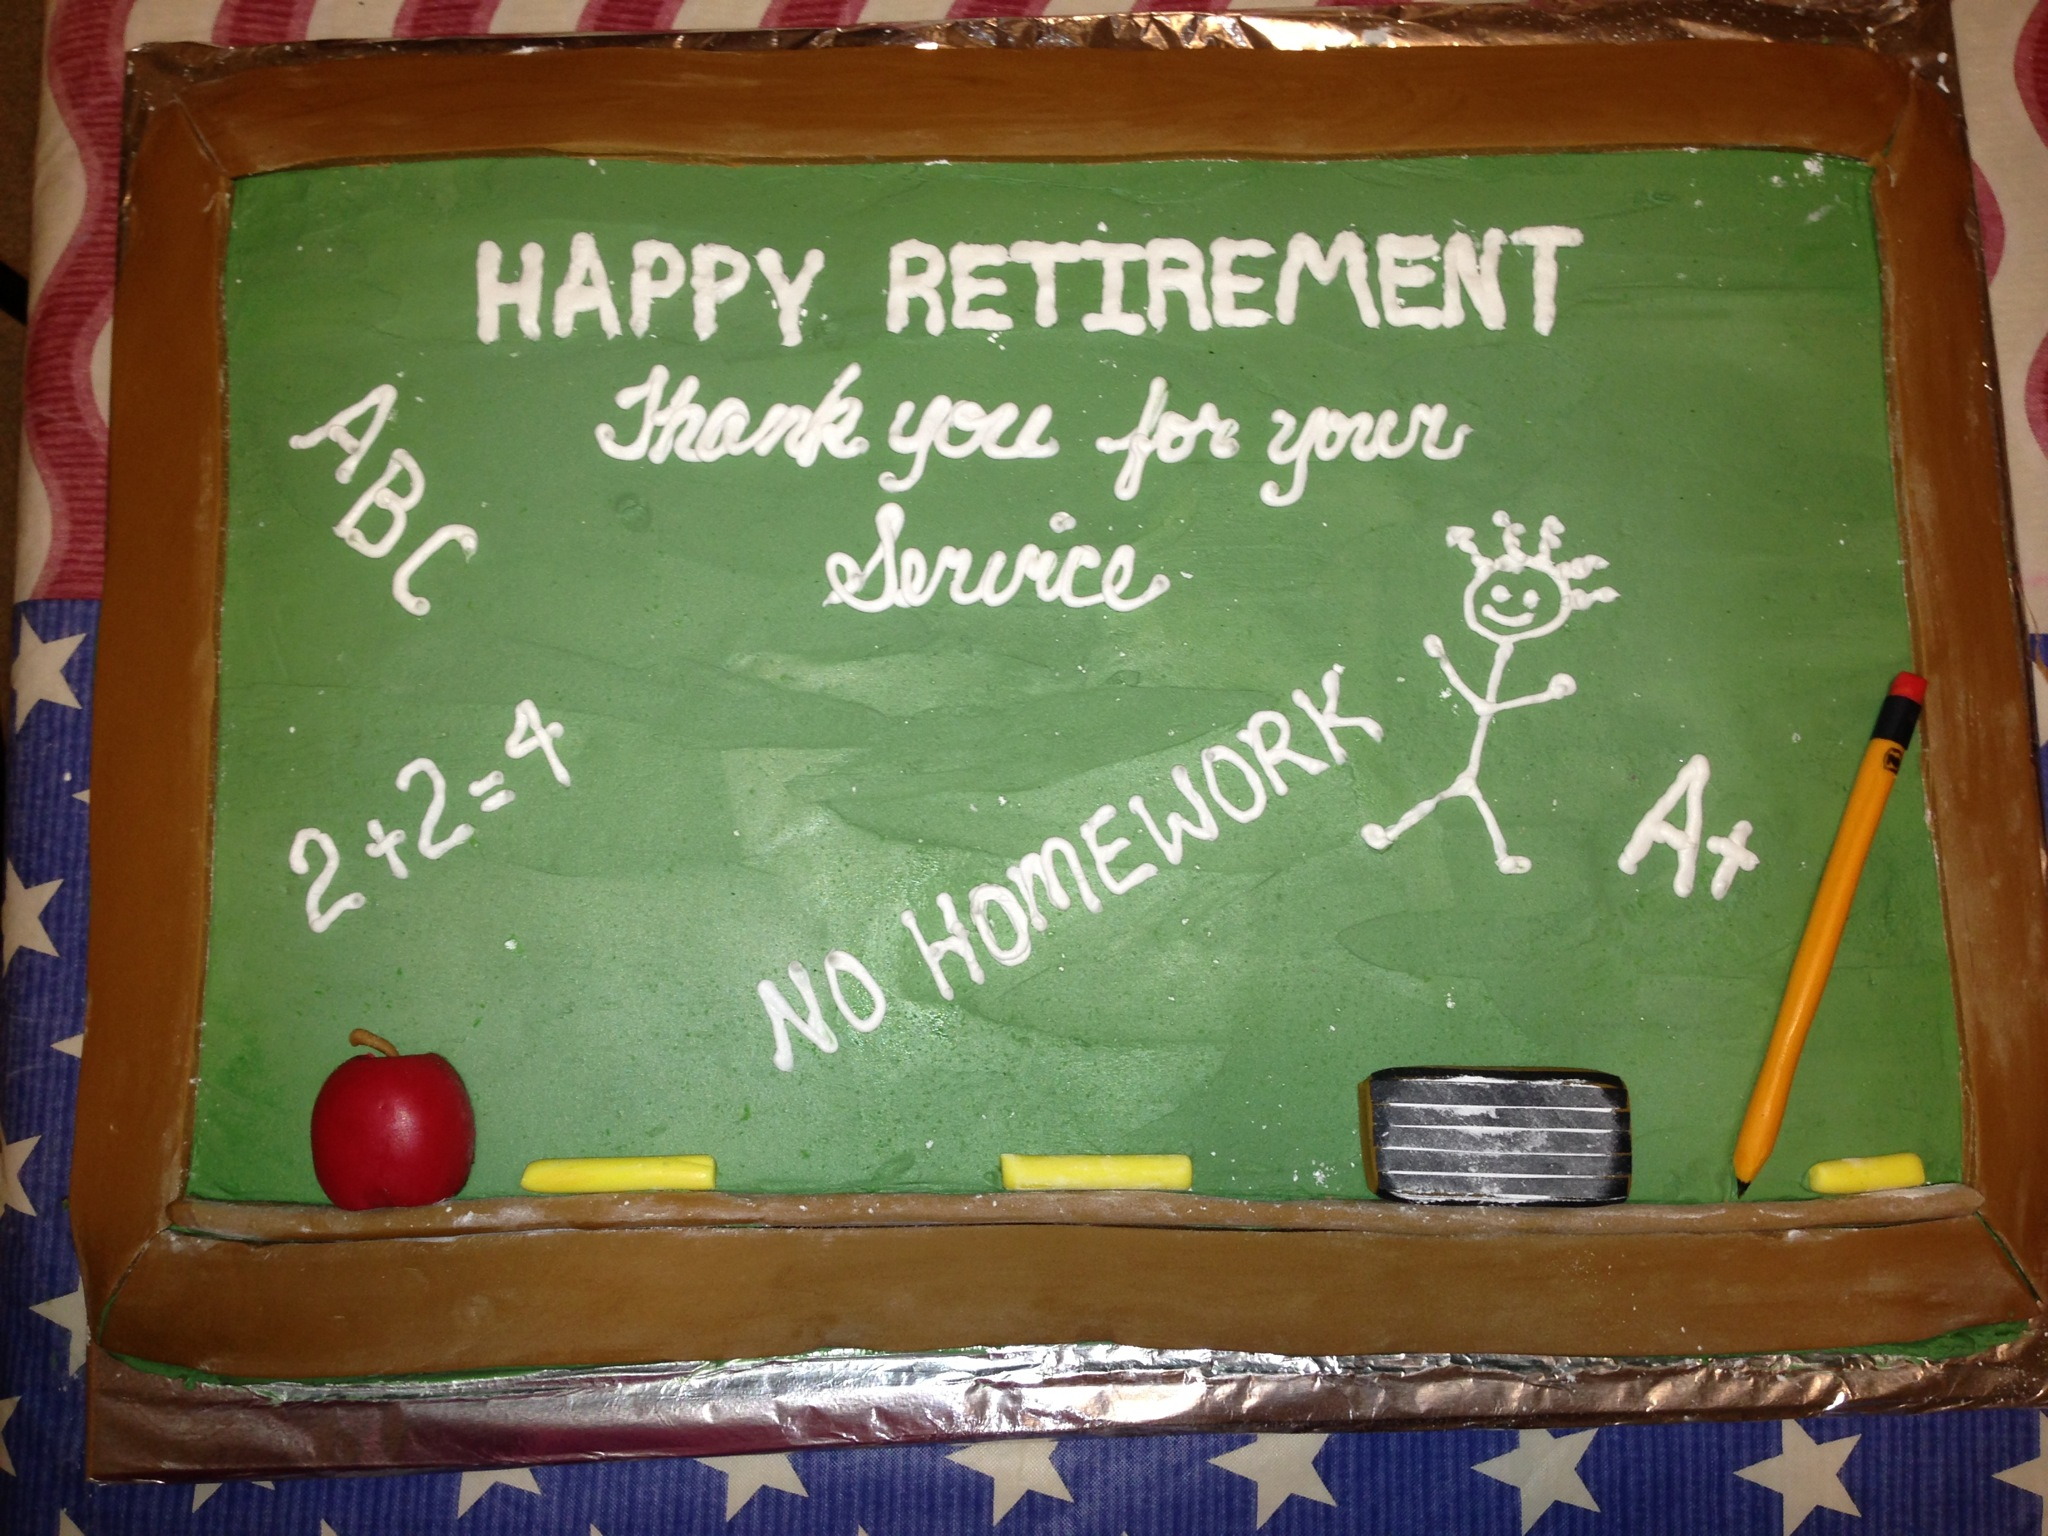 HAPPY RETIREMENT
Thank you for your
Service
ABC
2+2=4
NO HOMEWORK
A+